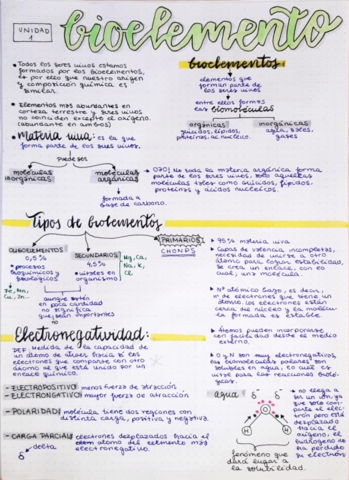 UNIDAD
1
bioelemento
• Todos los seres vivos estamos
formados por los bioelementos,
es por ello que nuestro origen
y composición química es
similar.
• Elementos más abundantes
corteza terrestre y seres vivos
no coinciden excepto el oxígeno
(abundante en ambos)
• Materia viva: es la que
forma parte de los seres vivos.
puede ser
moléculas
inorgánicas
moléculas
orgánicas
formada a
base de carbono.
bioelementos
elementos que
forman parte de
los seres vivos
entre ellos forman
las biomoléculas
orgánicas
glúcidos, lípidos,
proteínas, ác. nucleico.
inorgánicas
agua, sales,
gases
→ OJO! No toda la materia orgánica forma
parte de los seres vivos. Solo aquellas
moléculas tales como glúcidos, lípidos,
proteínas y ácidos nucleicos.
Tipos de bioelementos
OLIGOELEMENTOS
0,5%
• procesos
bioquímicos y
fisiológicos
Fe, Mn,
Cu, Zn...
SECUNDARIOS
4,5%
• vitales en
organismo
Mg, Ca,
Na, K,
Cl
aunque estén
en poca cantidad
no significa
que sean importantes
no
PRIMARIOS
CHONPS
→ 95% materia viva
→ Capas de valencia incompletas,
necesidad de unirse a otro
átomo para lograr estabilidad,
se crea un enlace, con lo
cual, una molécula.
→ Nº atómico bajo, es decir,
nº de electrones que tiene un
átomo. Los electrones están
cerca del núcleo y la molécula
formada es estable.
→ Átomos pueden incorporarse
con facilidad desde el medio
externo.
→ O y N son muy electronegativos,
las biomoléculas podrán ser
solubles en agua, lo cual es
vital para las reacciones bioló-
gicas.
Electronegatividad:
DEF. Medida de la capacidad de
un átomo de atraer hacia sí los
electrones que comparte con otro
átomo al que está unido por un
enlace químico.
- ELECTROPOSITIVO: menos fuerza de atracción
- ELECTRONEGATIVO: mayor fuerza de atracción
- POLARIDAD: molécula tiene dos regiones con
distinta carga, positiva y negativa.
- CARGA PARCIAL: electrones desplazados hacia el
átomo del elemento más
electronegativo.
δ
delta
agua
δ⁻
δ⁻
O
H
H
δ⁺
δ⁺
→ no llega a
ser un ion, ya
que solo com-
parte el elec-
trón pero está
desplazado
hacia el
oxígeno, el
hidrógeno no
ha perdido
su electrón
fenómeno que
dará lugar a
la solubilidad.